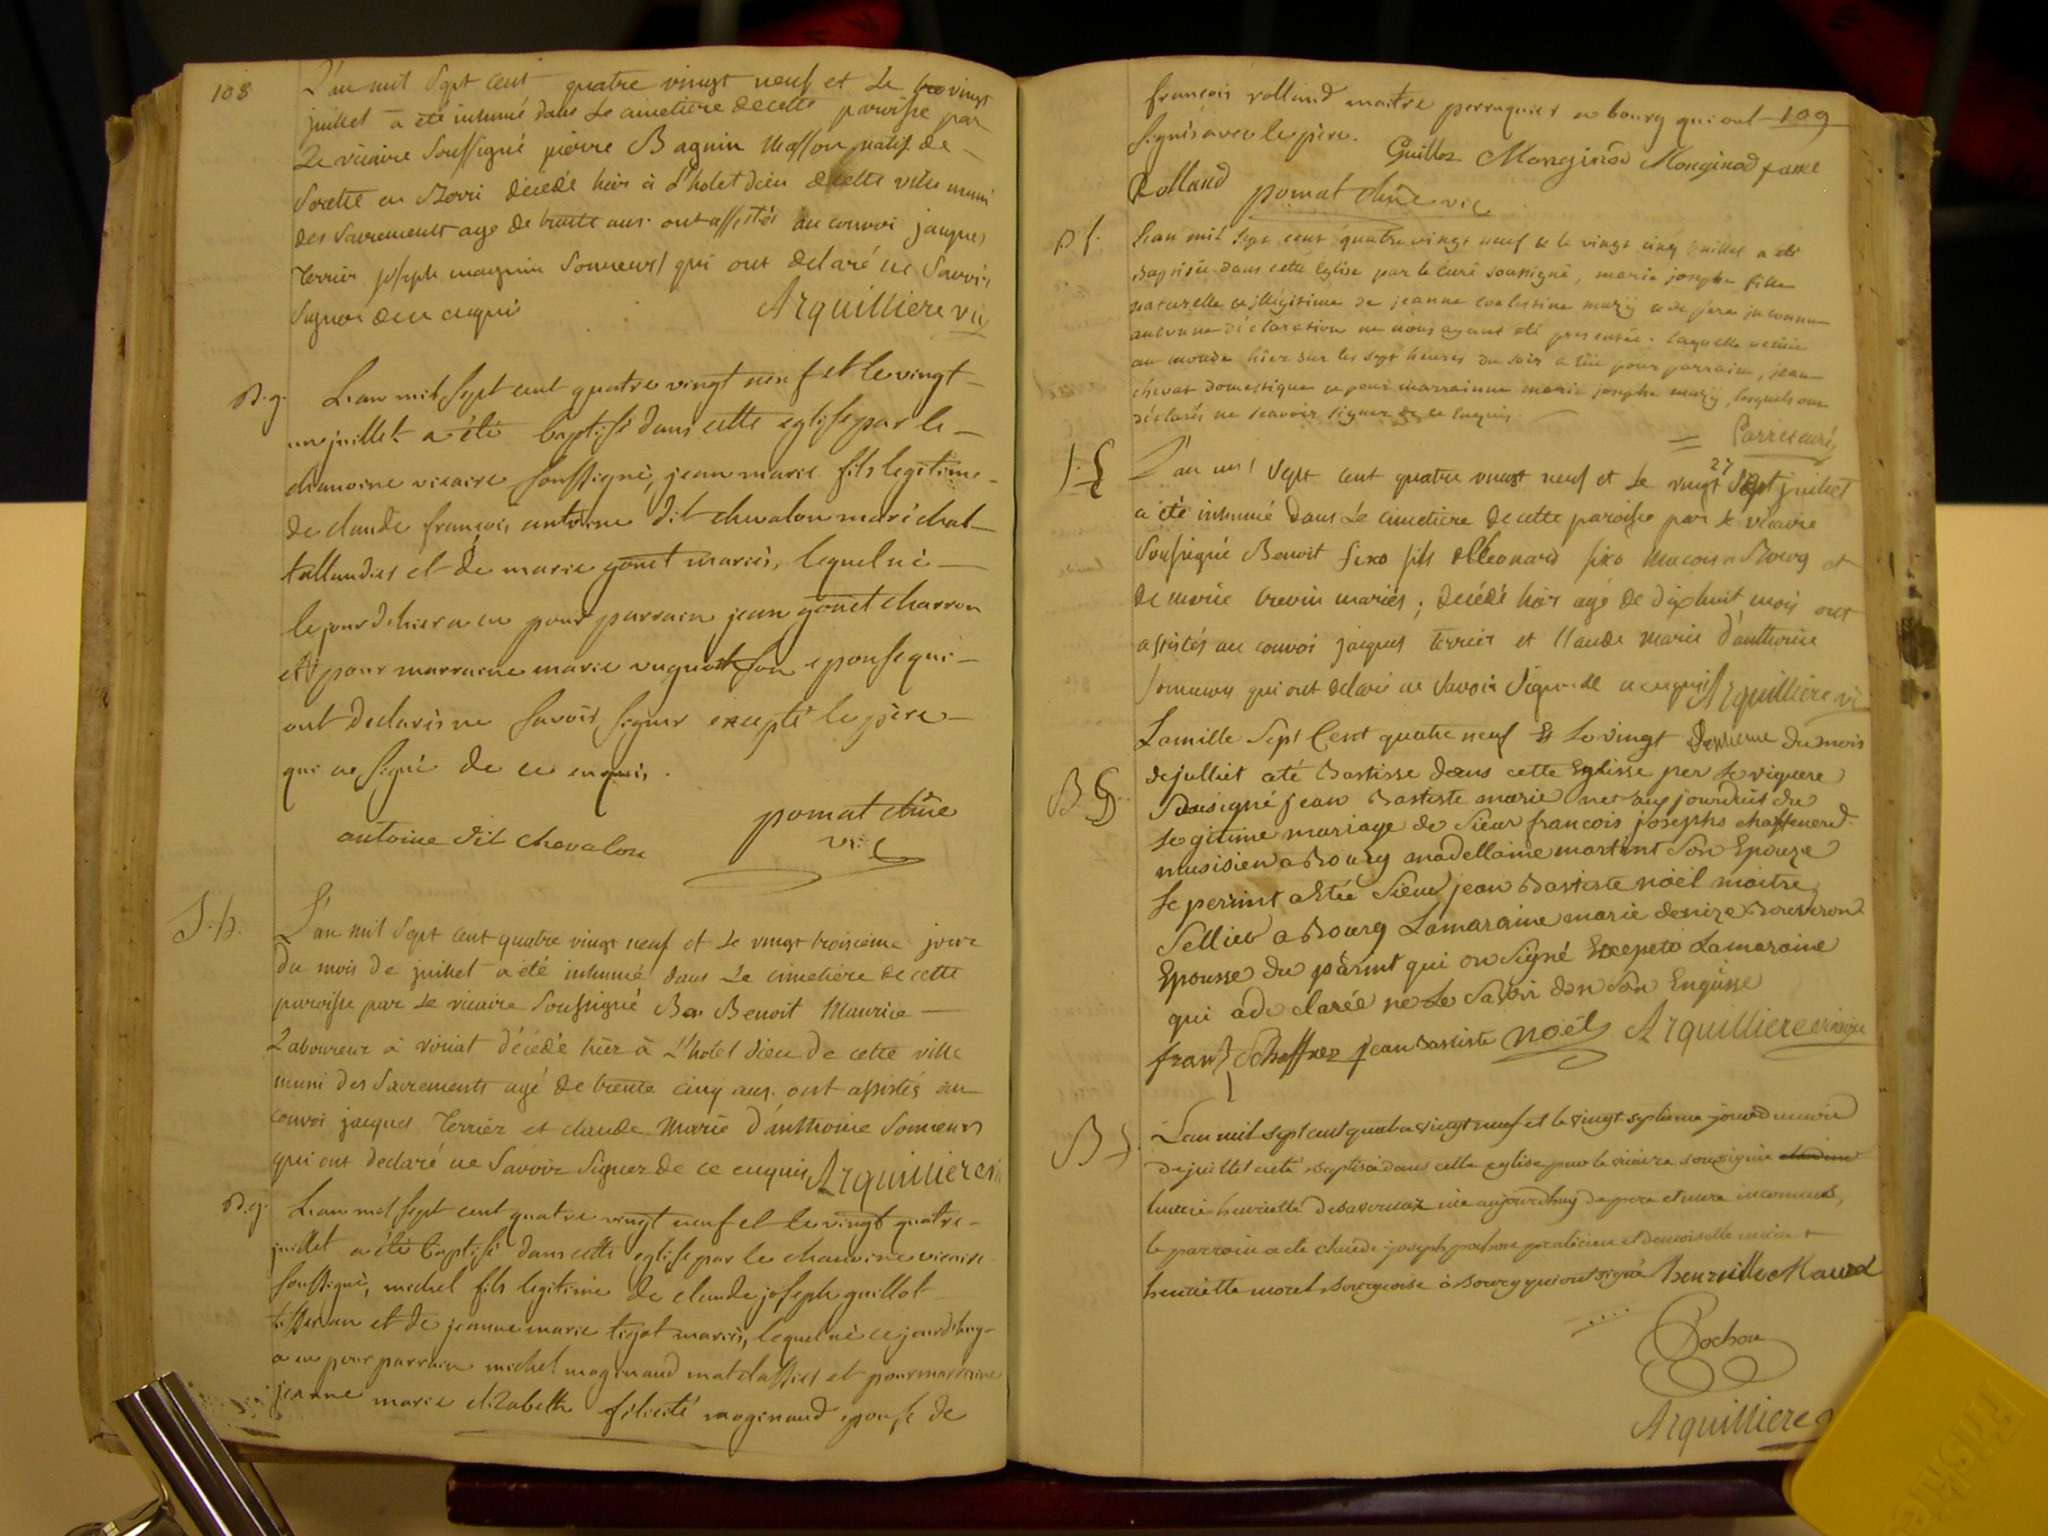 108
L'an mil Sept cent quatre vingt neuf et Le vingt
juillet a été inhumé dans Le cimetiere de cette paroisse par
Le vicaire Soussigné pierre Bagnin Masson natif de
en décédé hier à L'hotel dieu de cette ville muni
des Sacrements agé de trente ans. ont assistés au convoi jacques
terrier joseph magnin Sonneurs qui ont déclaré ne Savoir
Signer de ce enquis Arquilliere vic
B.g. L'an mil Sept cent quatre vingt neuf et le vingt
un juillet a été baptisé dans cette eglise par le
chanoine vicaire soussigné, jean marie fils legitime
de claude françois antoine dit chevalon maréchal
tallandier et de marie gonet mariés, lequel né
le jour d'hier a eu pour parrain jean gonet charron
et pour marraine marie son epouse qui
ont declarés ne savoir signer excepté le père
qui a signé de ce enquis.
antoine dit chevalon pomat chne
vic
S.h. L'an mil Sept cent quatre vingt neuf et Le vingt troisieme jour
du mois de juillet a été inhumé dans Le cimetiere de cette
paroisse par Le vicaire Soussigné Benoit Maurice
Laboureur à décédé hier à L'hotel dieu de cette ville
muni des Sacrements agé de trente cinq ans. ont assistés au
convoi jacques Terrier et claude Marie d'anthoine Sonneurs
qui ont declaré ne Savoir Signer de ce enquis Arquilliere vi
B.g. L'an mil sept cent quatre vingt neuf et le vingt quatre
juillet a été baptisé dans cette eglise par le chanoine vicaire
soussigné, michel fils legitime de claude joseph guillot
tisseran et de jeanne marie tijot mariés, lequel né ce jourd'huy
a eu pour parrain michel maginaud matelassier et pour marraine
jeanne marie elizabeth félicité maginaud epouse de
françois rolland maitre perruquier a bourg qui ont 109
signés avec le père. Guillot Monginod Monginod fame
Rolland pomat chne vic
L'an mil sept cent quatre vingt neuf & le vingt cinq juillet a été
baptisée dans cette Eglise par le Curé soussigné, marie josephe fille
naturelle et illégitime de jeanne coelestine mazÿ et de père inconnu
aucune déclaration ne nous ayant été presentée. laquelle venüe
au monde hier sur les sept heures du soir a eüe pour parrain, jean
chevat domestique et pour marrainne marie josephe mazÿ, lesquels ont
déclarés ne scavoir signer de ce Enquis.
curé
L'an mil Sept cent quatre vingt neuf et Le vingt Sept 27 juillet
a été inhumé dans Le cimetiere de cette paroisse par le vicaire
Soussigné Benoit fixo fils de Leonard fixo macon a Bourg et
de marie trevin mariés, décédé hier agé de dixhuit mois ont
assistés au convoi jacques terrier et Claude Marie d'anthoine
Sonneurs qui ont déclaré ne Savoir Signer de ce enquis Arquilliere vi
Lamille Sept Cent quatre neuf & Le vingt Septieme du mois
B G. dejulliet até Bastisse dans cette Eglisse per Le viquere
Sousigné jean Bastiste marie net aujourduit du
Legitime mariage de Sieur francois josephs chaffenerd
musisien a Bourg madellaine martint Son Epouze
Le perrint a Etée Sieur jean Bastiste noël maitre
Sellier a Bourg Lamaraine marie denize
Epousse du pärint qui on Signé Excepeté Lamaraine
qui adeclarée ne Le Savoir den Son Enquisse
franz Schaffner jean Bastiste noël Arquilliere vicaire
B L'an mil sept cent quatre vingt neuf et le vingt septieme jour du mois
de juillet a eté baptisée dans cette eglise par le vicaire soussigné
henriette née aujourdhuy de pere et mere inconnus,
le parrain a eté claude joseph pochon praticien et demoiselle
henriette morel bourgeoise à bourg qui ont signé henriette Morel
Pochon
Arquilliere